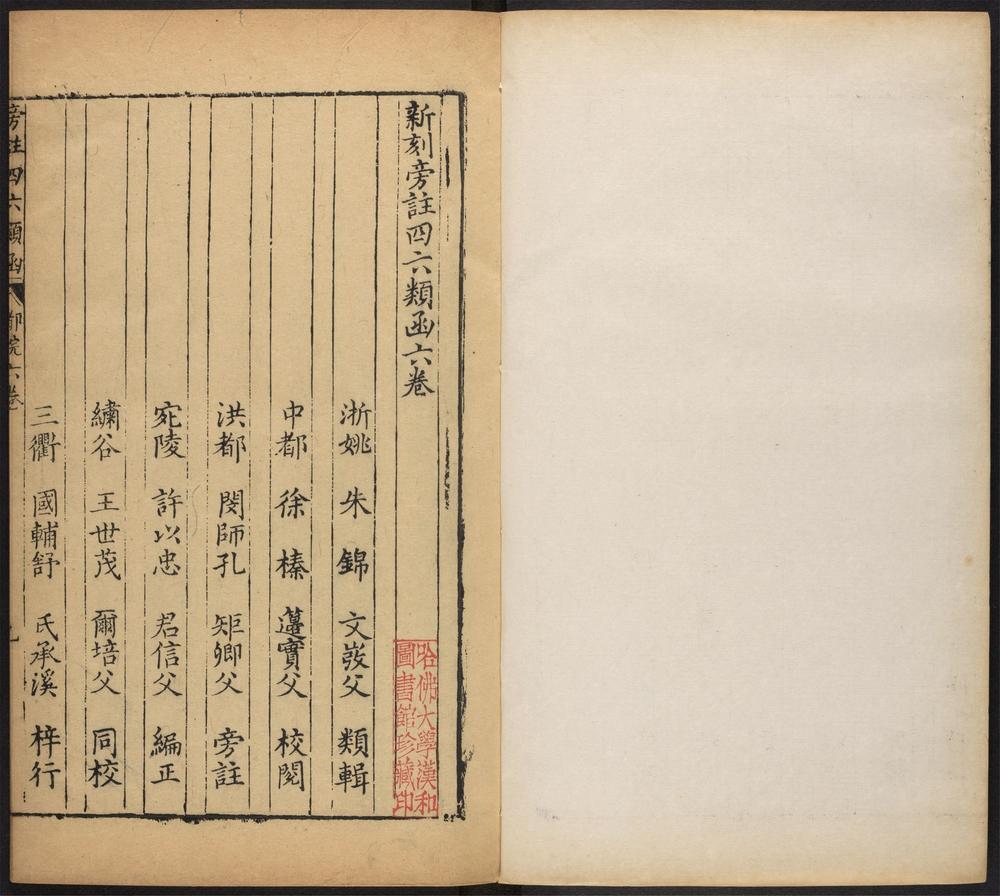 新刻旁註四六類函六卷
浙姚 朱錦 文弢父 類輯
中都 徐榛 蓬實父 校閱
洪都 閔師孔 矩卿父 旁註
宛陵 許以忠 君信父 編正
繡谷 王世茂 爾培父 同校
三衢 國輔舒 氏承溪 梓行
旁註四六類函 都院六卷
哈佛大學漢和
圖書館珍藏印